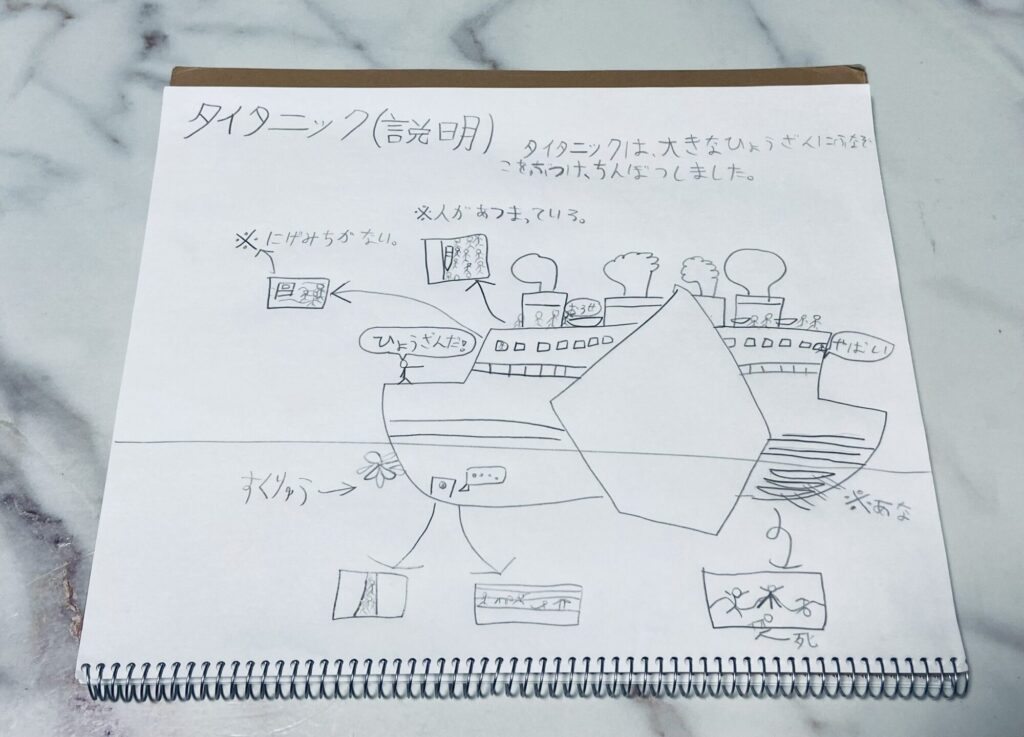 タイタニック(説明)
タイタニックは、大きなひょうざんにふなぞ
こをぶつけ、ちんぼつしました。
※人があつまっている。
※にげみちがない。
ひょうざんだ!
やばい
すくりゅう→
‥‥
※あな
死